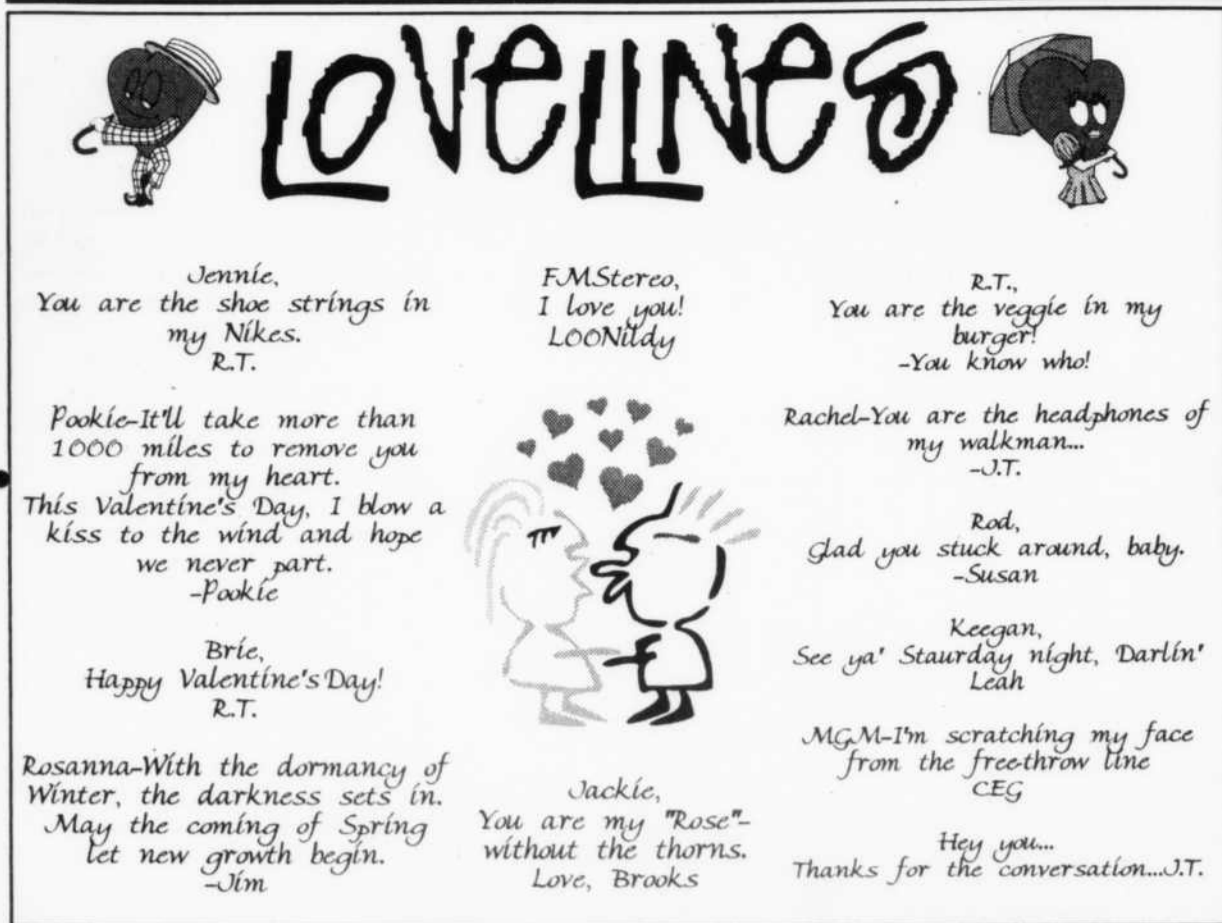 LOVELINES
Jennie,
You are the shoe strings in
my Nikes.
R.T.
Pookie-It'll take more than
1000 miles to remove you
from my heart.
This Valentine's Day, I blow a
kiss to the wind and hope
we never part.
-Pookie
Brie,
Happy Valentine's Day!
R.T.
Rosanna-With the dormancy of
Winter, the darkness sets in.
May the coming of Spring
let new growth begin.
-Jim
FMStereo,
I love you!
LOONildy
Jackie,
You are my "Rose"-
without the thorns.
Love, Brooks
R.T.,
You are the veggie in my
burger!
-You know who!
Rachel-You are the headphones of
my walkman...
-J.T.
Rod,
Glad you stuck around, baby.
-Susan
Keegan,
See ya' Staurday night, Darlin'
Leah
MGM-I'm scratching my face
from the free-throw line
CEG
Hey you...
Thanks for the conversation...J.T.